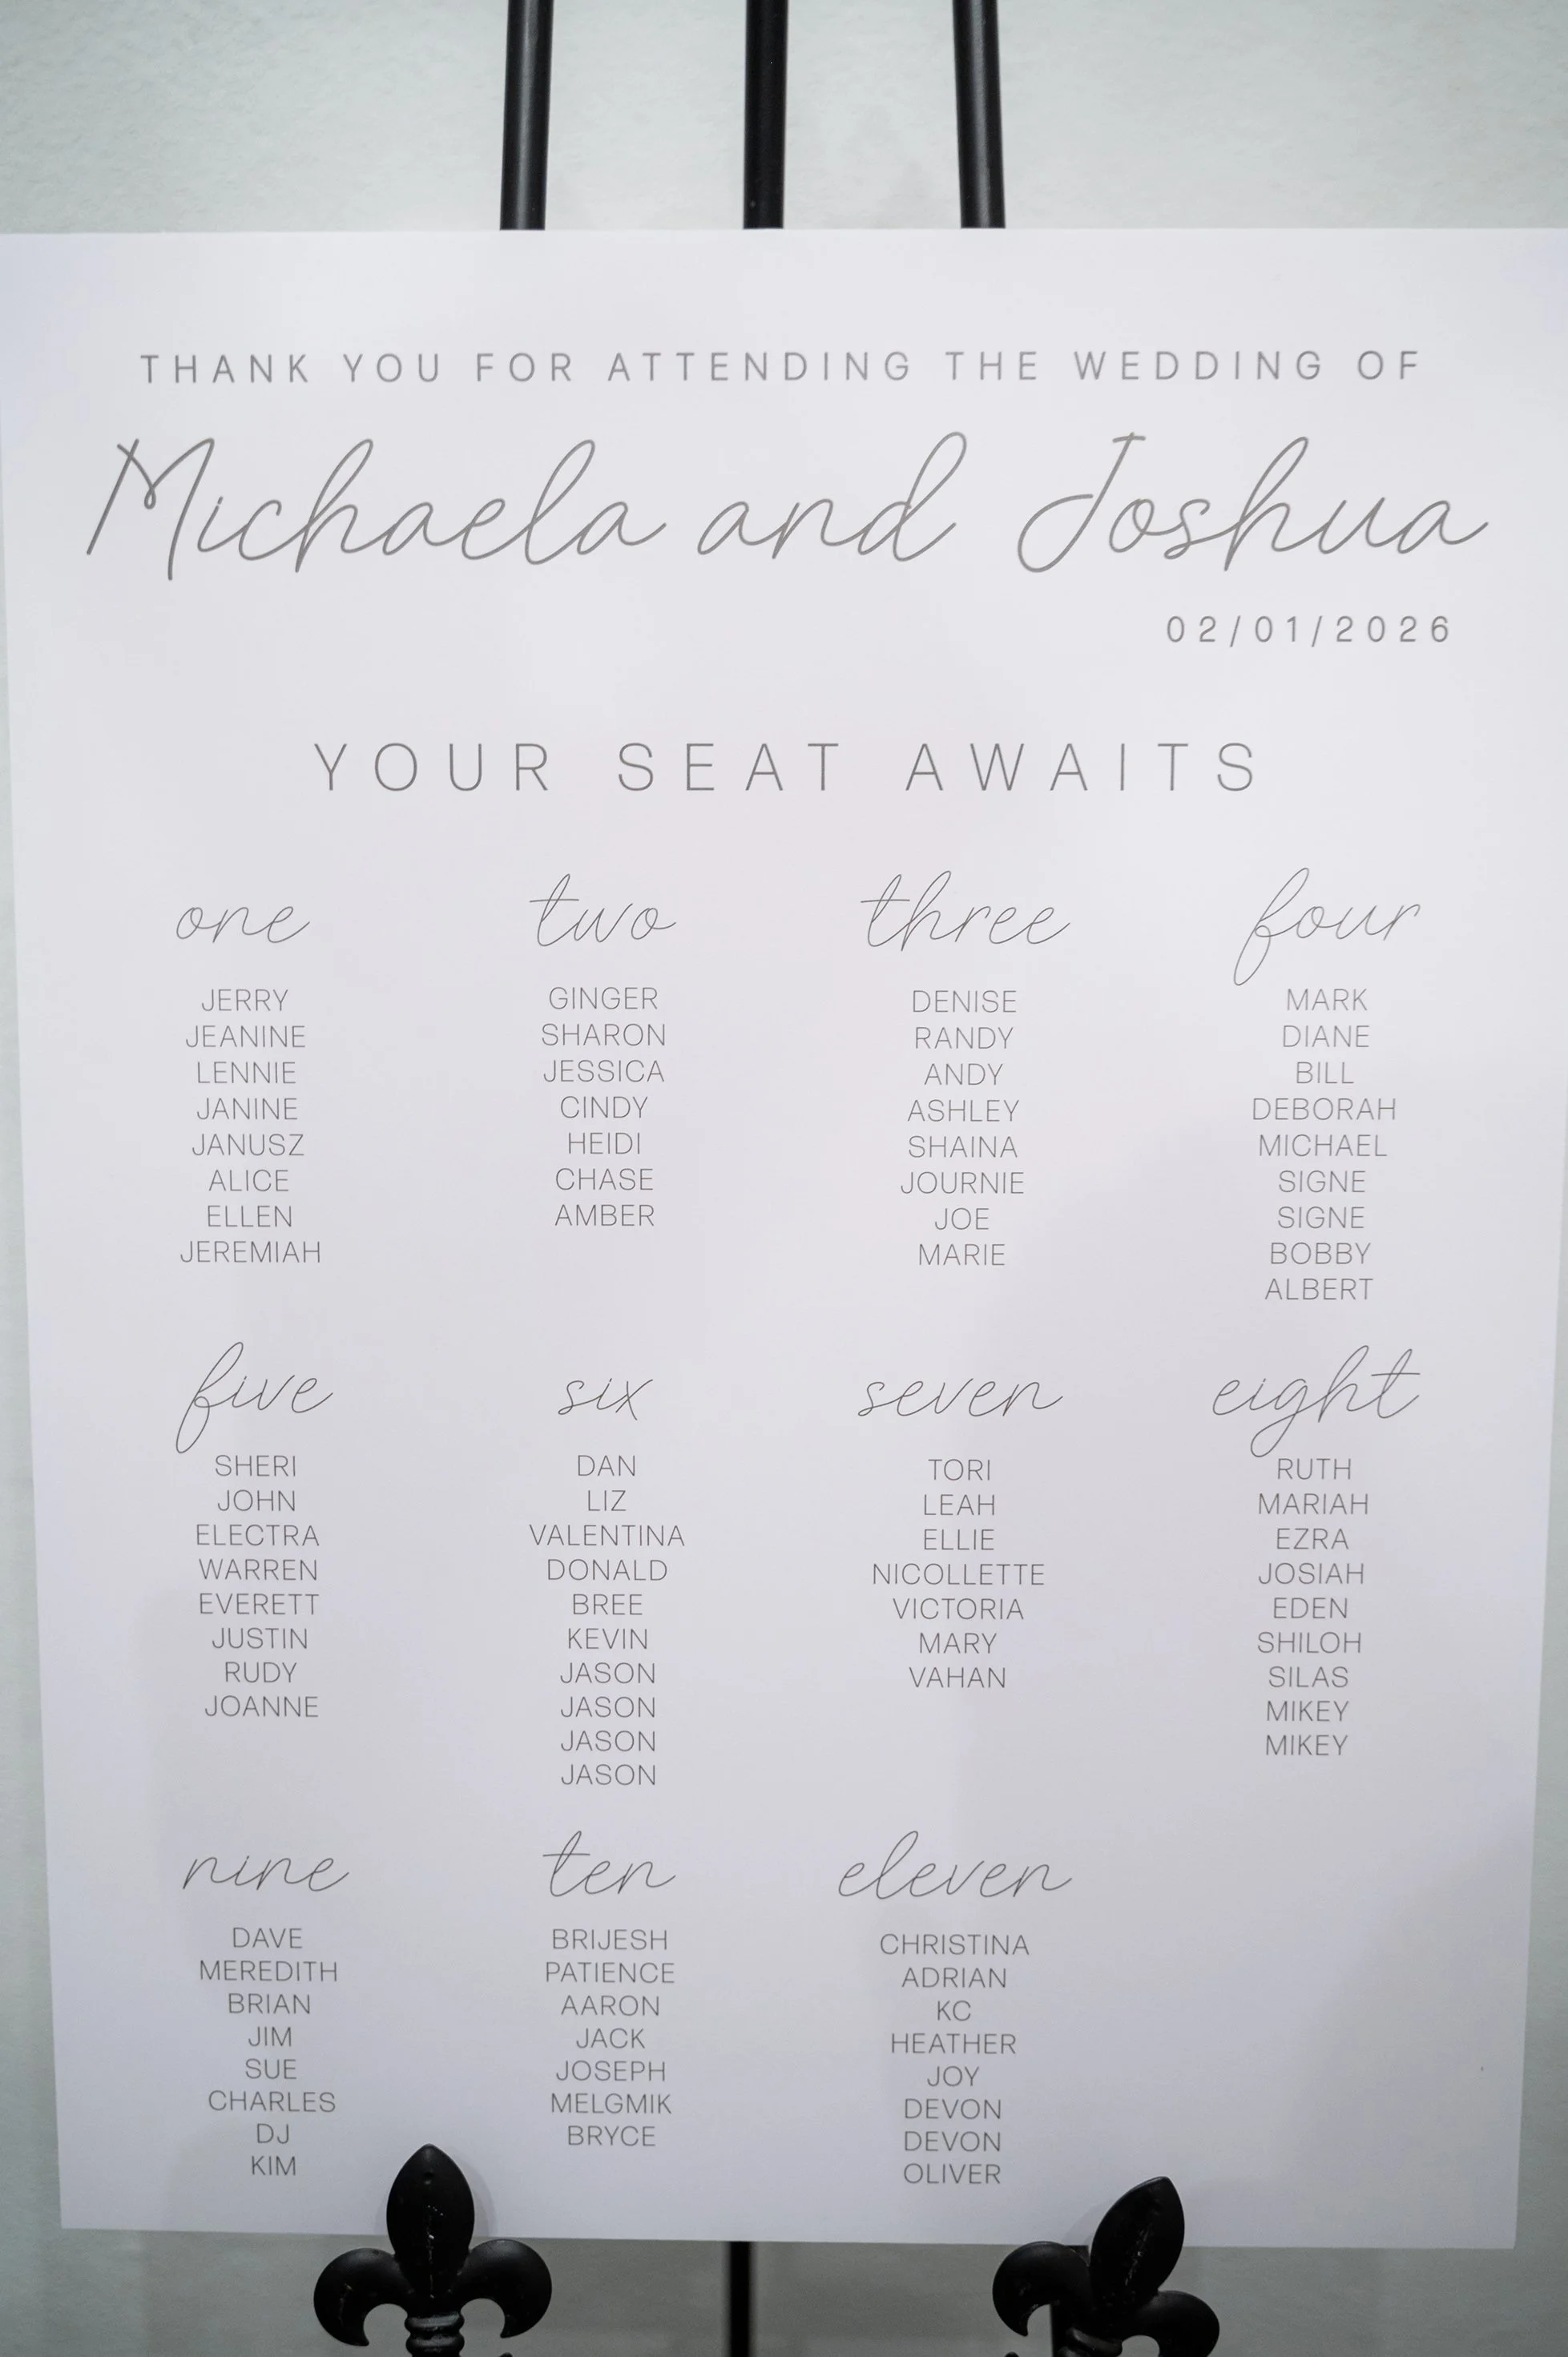 THANK YOU FOR ATTENDING THE WEDDING OF
Michaela and Joshua
02/01/2026
YOUR SEAT AWAITS
one
JERRY
JEANINE
LENNIE
JANINE
JANUSZ
ALICE
ELLEN
JEREMIAH
two
GINGER
SHARON
JESSICA
CINDY
HEIDI
CHASE
AMBER
three
DENISE
RANDY
ANDY
ASHLEY
SHAINA
JOURNIE
JOE
MARIE
four
MARK
DIANE
BILL
DEBORAH
MICHAEL
SIGNE
SIGNE
BOBBY
ALBERT
five
SHERI
JOHN
ELECTRA
WARREN
EVERETT
JUSTIN
RUDY
JOANNE
six
DAN
LIZ
VALENTINA
DONALD
BREE
KEVIN
JASON
JASON
JASON
JASON
seven
TORI
LEAH
ELLIE
NICOLLETTE
VICTORIA
MARY
VAHAN
eight
RUTH
MARIAH
EZRA
JOSIAH
EDEN
SHILOH
SILAS
MIKEY
MIKEY
nine
DAVE
MEREDITH
BRIAN
JIM
SUE
CHARLES
DJ
KIM
ten
BRIJESH
PATIENCE
AARON
JACK
JOSEPH
MELGMIK
BRYCE
eleven
CHRISTINA
ADRIAN
KC
HEATHER
JOY
DEVON
DEVON
OLIVER